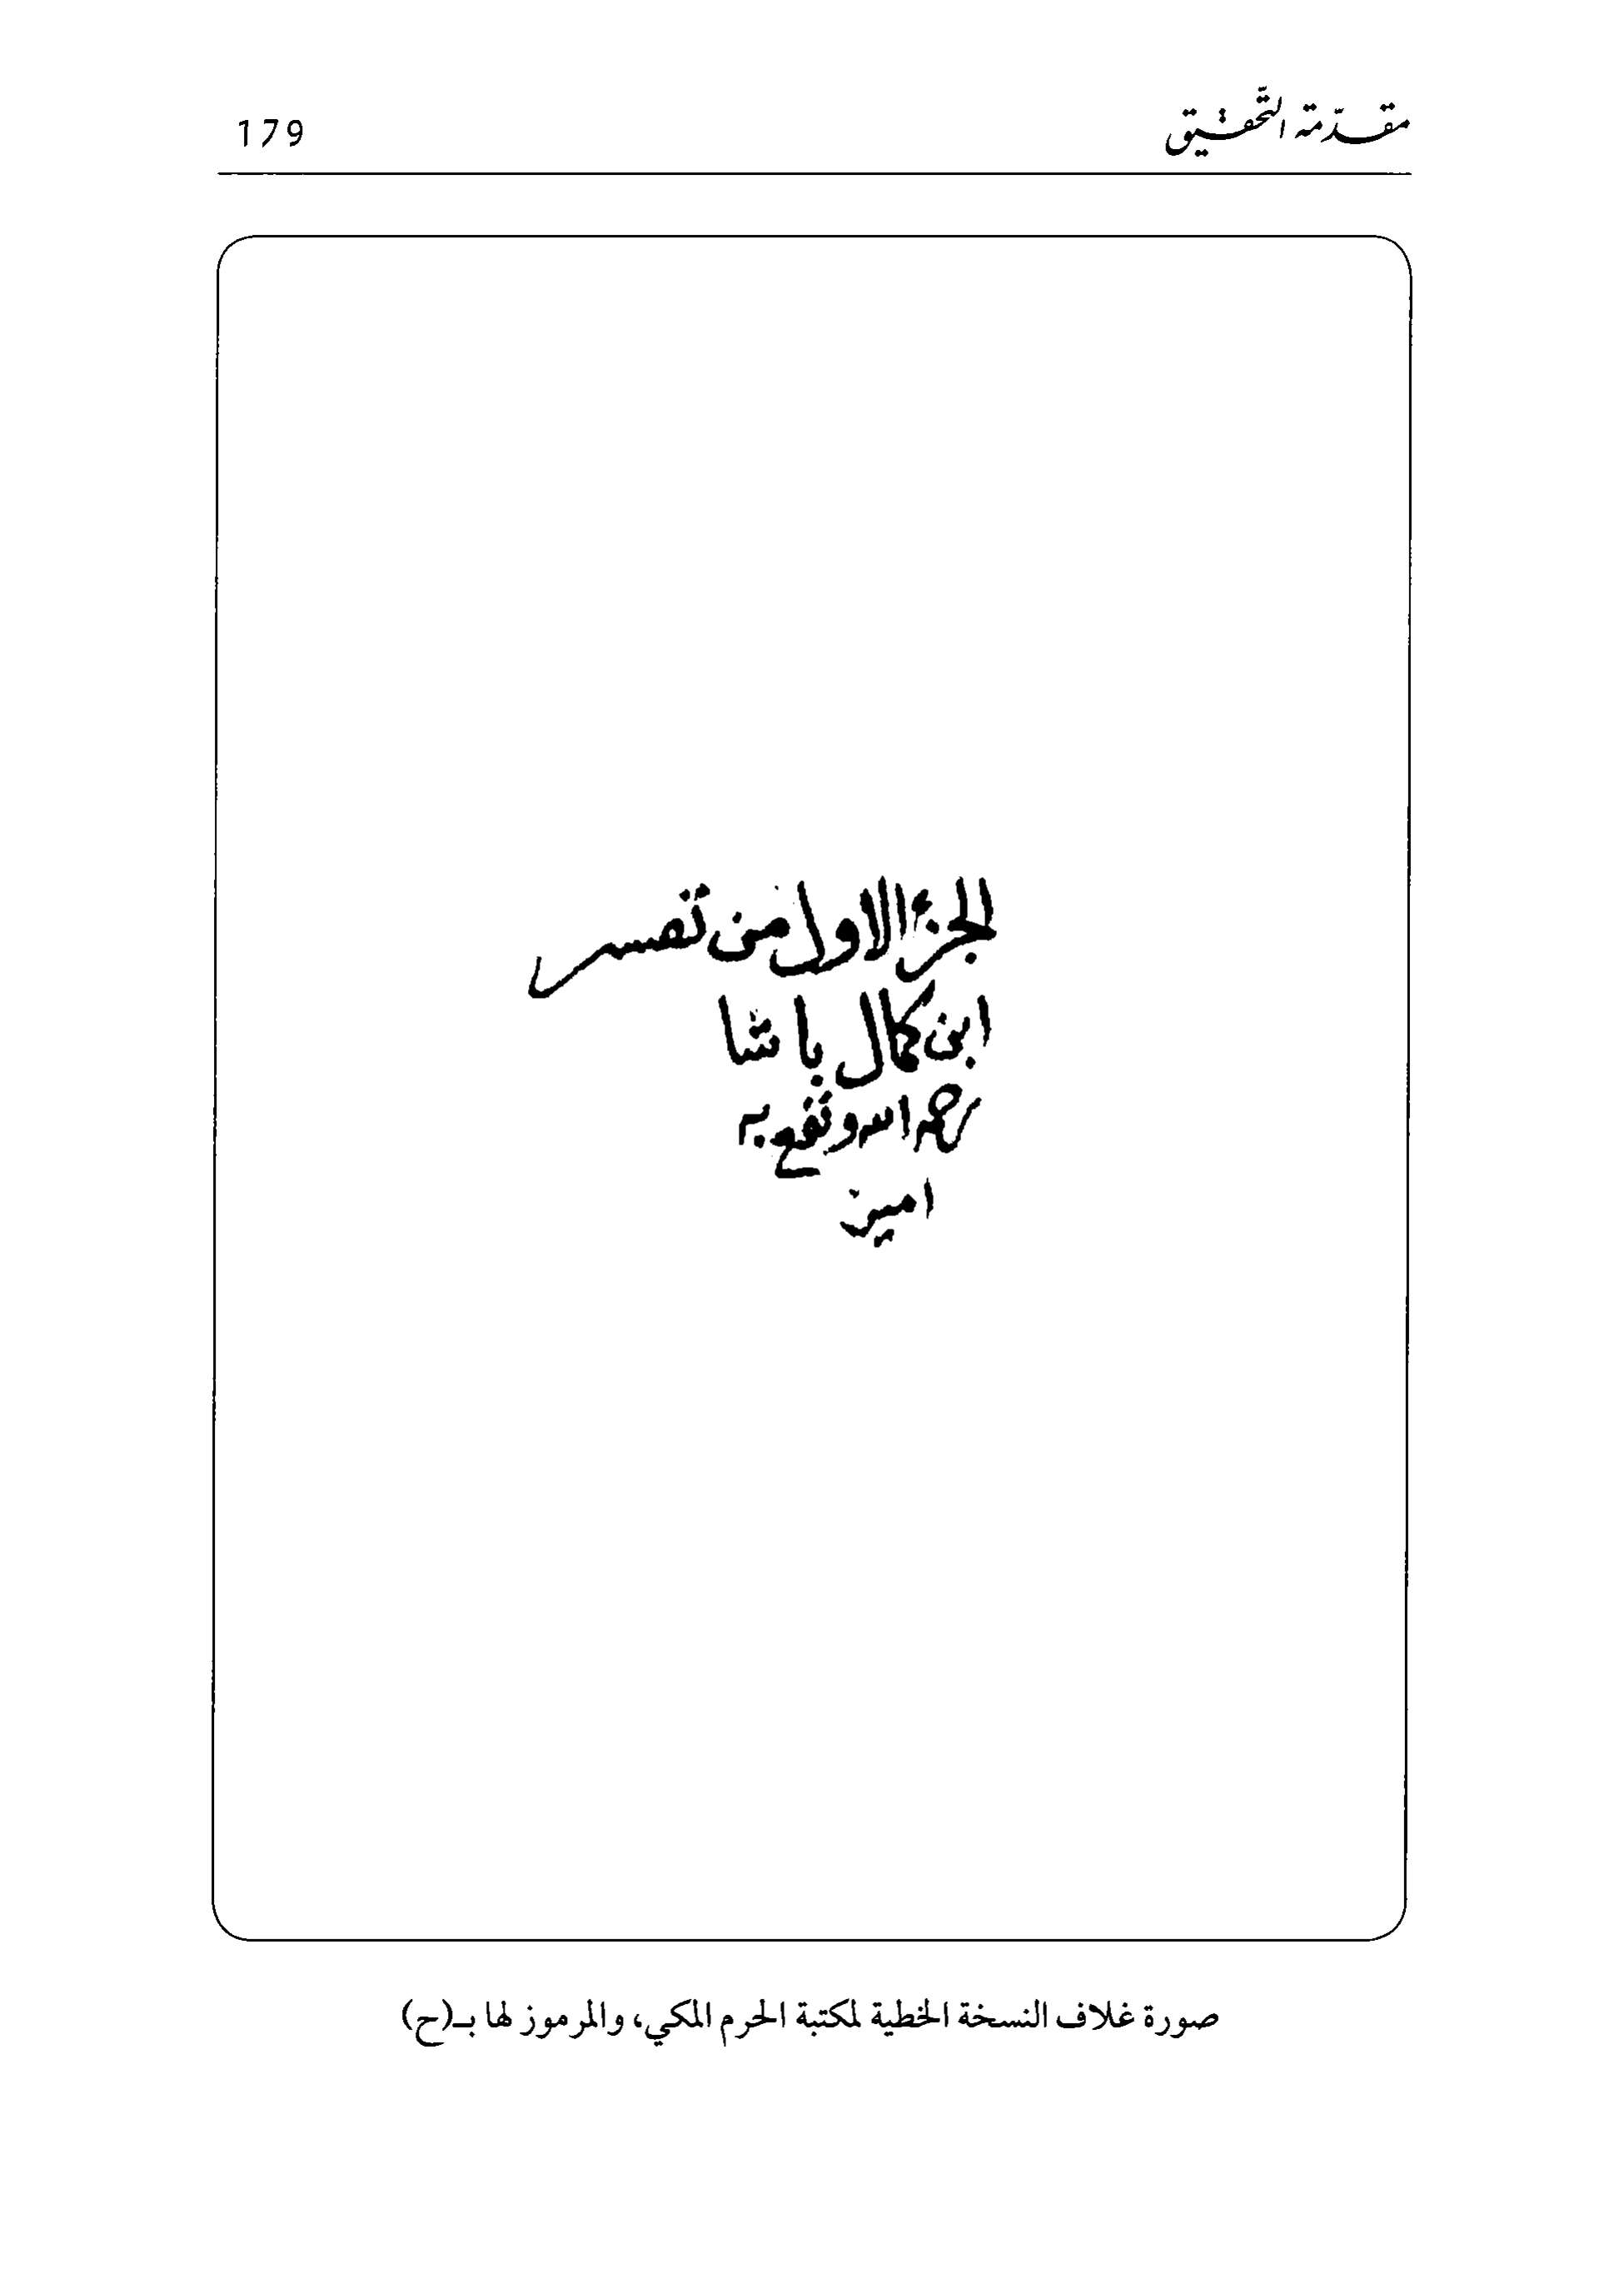 مقدّمة التّحقيق
179
الجزء الاول من تفسير
ابن كمال باشا
رحمه الله ونفع به
امين
صورة غلاف النسخة الخطية لمكتبة الحرم المكي، والمرموز لها بـ(ح)